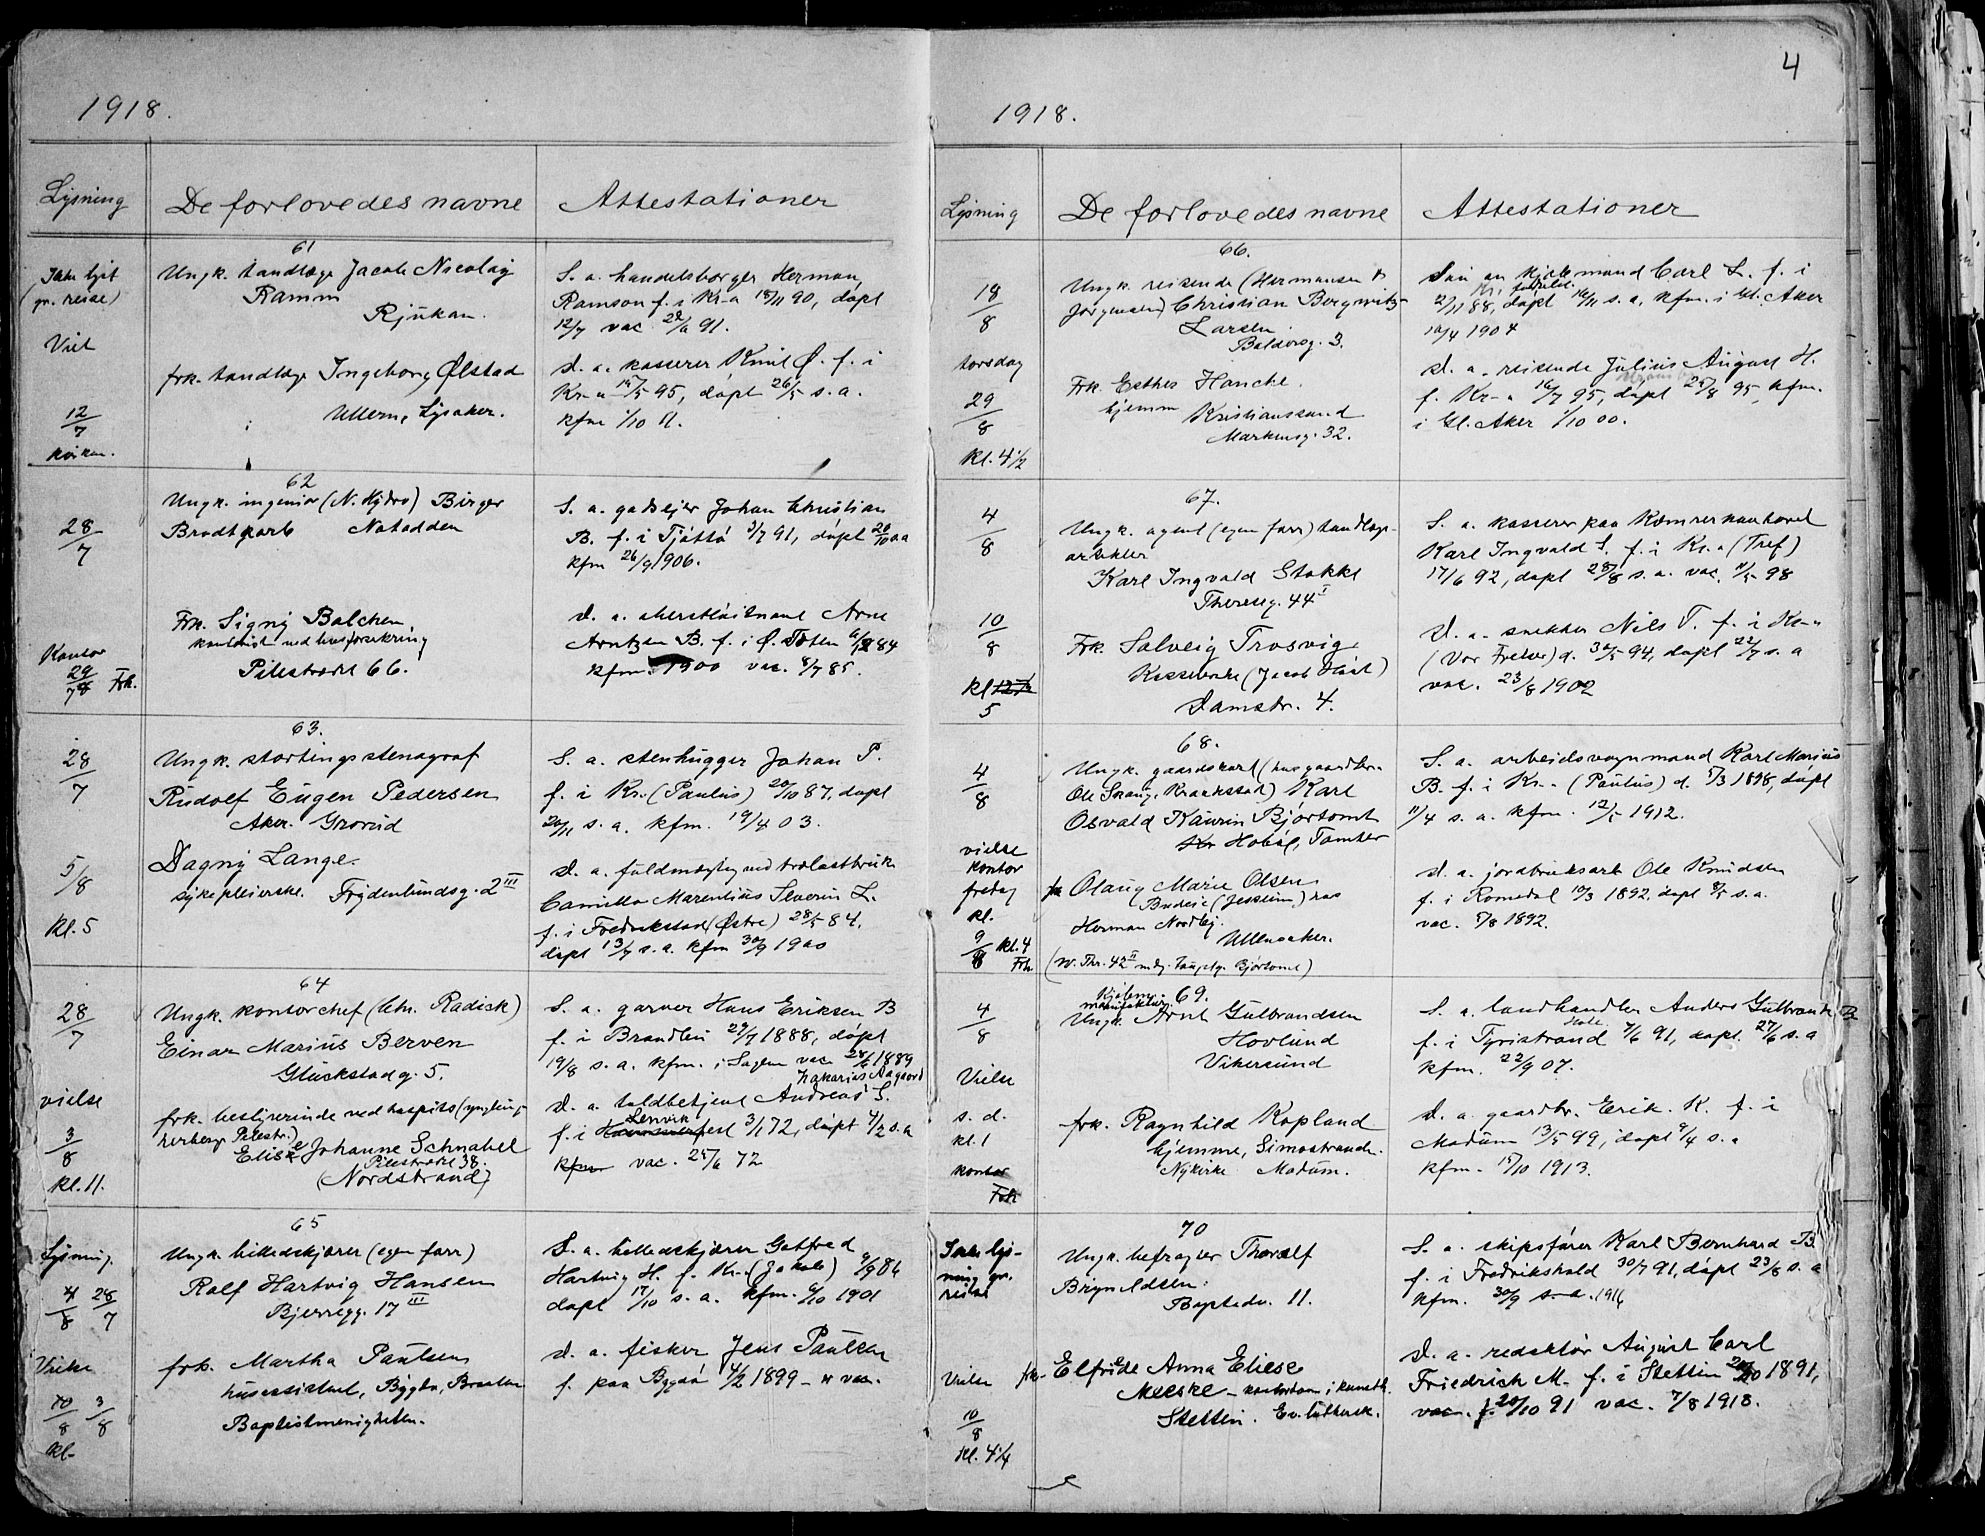 4
1918.
Lysning
De forlovedes navne
Attestationer
61
Ikke lyst
(gr. reise)
Viet
12/7
kirken.
Ungk. tandlæge Jacob Nicolay
Ramm
Rjukan.
frk. tandlæge Ingeborg Ølstad
Ullern, Lysaker.
S. a. handelsborger Herman
Ramson f. i Kr-a 90, døpt
12/7 vac. 91.
d. a. kasserer Knut Ø. f. i
Kr-a 15/5 95, døpt 26/5 s. a.
kfm 1/10 11.
62
28/7
Kontor
29/7 Frk.
Ungk. ingeniør (N. Hydro) Birger
Brodtkorb Notodden
Frk. Signy Balchen
kontorist ved livsforsikring
Pilestrædet 66.
S. a. godsejer Johan Christian
B. f. i Tjøttø 3/7 91, døpt
kfm 26/9 1906.
d. a. oberstløitnant Arne
Arntzen B. f. i Ø. Toten 84
kfm. 1900 vac. 8/7 85.
63.
28/7
5/8
kl. 5
Ungk. stortingsstenograf
Rudolf Eugen Pedersen
Aker. Grorud
Dagny Lange.
sykepleierske. Frydenlundsg. 2 III
S. a. stenhugger Johan P.
f. i Kr. (Paulus) 20/10 87, døpt
20/11 s. a. kfm. 19/4 03.
d. a. fuldmægtig ved trælastbruk
Camillo Marentius Severin L.
f. i Fredrikstad (Østre) 28/5 84,
døpt 13/7 s. a. kfm 30/9 1900
64
28/7
vielse
3/8
kl. 11.
Ungk. kontorchef (Chr. Radich)
Einar Marius Berven
Glückstadg. 5.
frk. bestyrerinde ved hospits (ynglinge-
herberge Pilestr.)
Elise Johanne Schnabel
Pilestrædet 38.
(Nordstrand)
S. a. garver Hans Eriksen B
f. i Brandbu 29/7 1888, døpt
19/8 s. a. kfm. i Sagene vac 28/6 1889
Zakarias Aagaard
d. a. toldbetjent Andreas S.
Lenvik
f. i Hammerfest 3/1 72, døpt 4/2 s. a
kfm vac. 25/6 72
65
Lysning.
4/8 28/7
Vielse
10/8 3/8
kl-
Ungk. billedskjærer (egen forr)
Rolf Hartvig Hansen
Bjerregg. 17 III
frk. Martha Paulsen
husassistent, Bygdø,
Baptistmenigheten.
S. a. billedskjærer Gotfred
Hartvig H. f. Kr-a (Jakob) 9/9 86
døpt 17/10 s. a. kfm. 6/10 1901
d. a. fisker Jens Paulsen
f. paa Bygdø 4/2 1899 - vac.
1918.
Lysning
De forlovedes navne
Attestationer
66.
18/8
torsdag
29/8
Kl. 4 1/2
Ungk. reisende (Hermansen &
Jørgensen) Christian Bergwitz-
Larsen.
Baldersg. 3.
Frk. Esther Hanche.
hjemme Kristianssand
Markensg. 32.
Søn av Carl L. f. i
2/11 88, døpt 16/11 s. a. kfm. i Gl. Aker
10/4 1904
d. a. reisende Julius August H.
f. Kr-a 16/7 95, døpt 25/8 95, kfm.
i Gl. Aker 1/10 00.
67.
4/8
10/8
kl 12 1/2
5
Ungk. agent (egen forr) tandlæge-
artikler
Karl Ingvald Stokke
Theresesg. 44 I
Frk. Solveig Trosvig
Kassererske (Jacob Høst)
Damstr. 4.
S. a. kasserer paa Kæmnerkontoret
Karl Ingvald S. f. i Kr.a (Tref)
17/6 92, døpt 28/8 s. a. vac. 11/5 98
d. a. snekker Nils T. f. i Kr-a
(Vor Frelser) d. 30/5 94, døpt 22/7 s. a
vac. 23/8 1902
68.
4/8
vielse
kontor
fredag
kl.
9/8 kl. 4
Frk
Ungk. gaardskarl (hos gaardbr.
Ole Krankstad) Karl
Osvald Kaurin Bjørtomt
Hobøl, Tomter
frk Olaug Marie Olsen
Budeie (Jessheim) hos
Herman Nordby.
Ullensaker.
(W. Thr. 42 II Bjørtomt)
S. a. arbeidsvognmand Karl Marius
B. f. i Kr.- (Paulus) d. 5/3 1898, døpt
11/4 s. a. kfm. 12/5 1912.
d. a. jordbruksarb Ole Knudsen
f. i Romedal 10/3 1892, døpt 8/5 s. a.
vac. 5/8 1892.
69.
4/8
Vielse
s. d.
kl. 1
kontor
Frk
manufaktur.
Ungk. Arnt Gulbrandsen
Hovlund
Vikersund
frk. Ragnhild Kopland
hjemme, Simostranden.
Nykirke Modum.
S. a. landhandler Anders Gulbrands.
Hole
f. i Tyristrand 7/6 91, døpt. 27/6 s. a
kfm. 22/9 07.
d. a. gaardbr. Erik. K. f. i
Modum 13/5 99, døpt 9/4 s. a
kfm. 15/10 1913.
70
Ikke lys-
ning gr.
reise
Vielse
10/8
Kl. 4 1/4
Ungk. befragter Thoralf
Brynildsen.
Bogstadv. 11.
frk. Elfriede Anna Eliese
Meeske - kontordame i kunsth.
Stettin. Ev. luthersk.
S. a. skipsfører Karl Bernhard B.
f. i Fredrikshald 30/7 91, døpt 23/8 s. a
kfm. 30/9 s. a. 1916
d. a. redaktør August Carl
Friedrich M- f. i Stettin 1891,
vac. f. 20/10 91 vac. 7/8 1918.